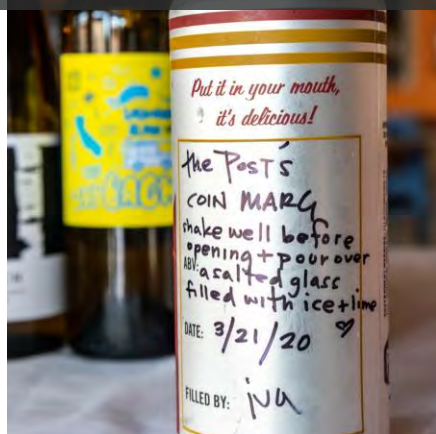 Put it in your mouth,
it's delicious!
the Post's
COIN MARG
shake well before
opening + pour over
ABV: a salted glass
filled with ice + lime
DATE: 3/21/20 ♡
FILLED BY: iva